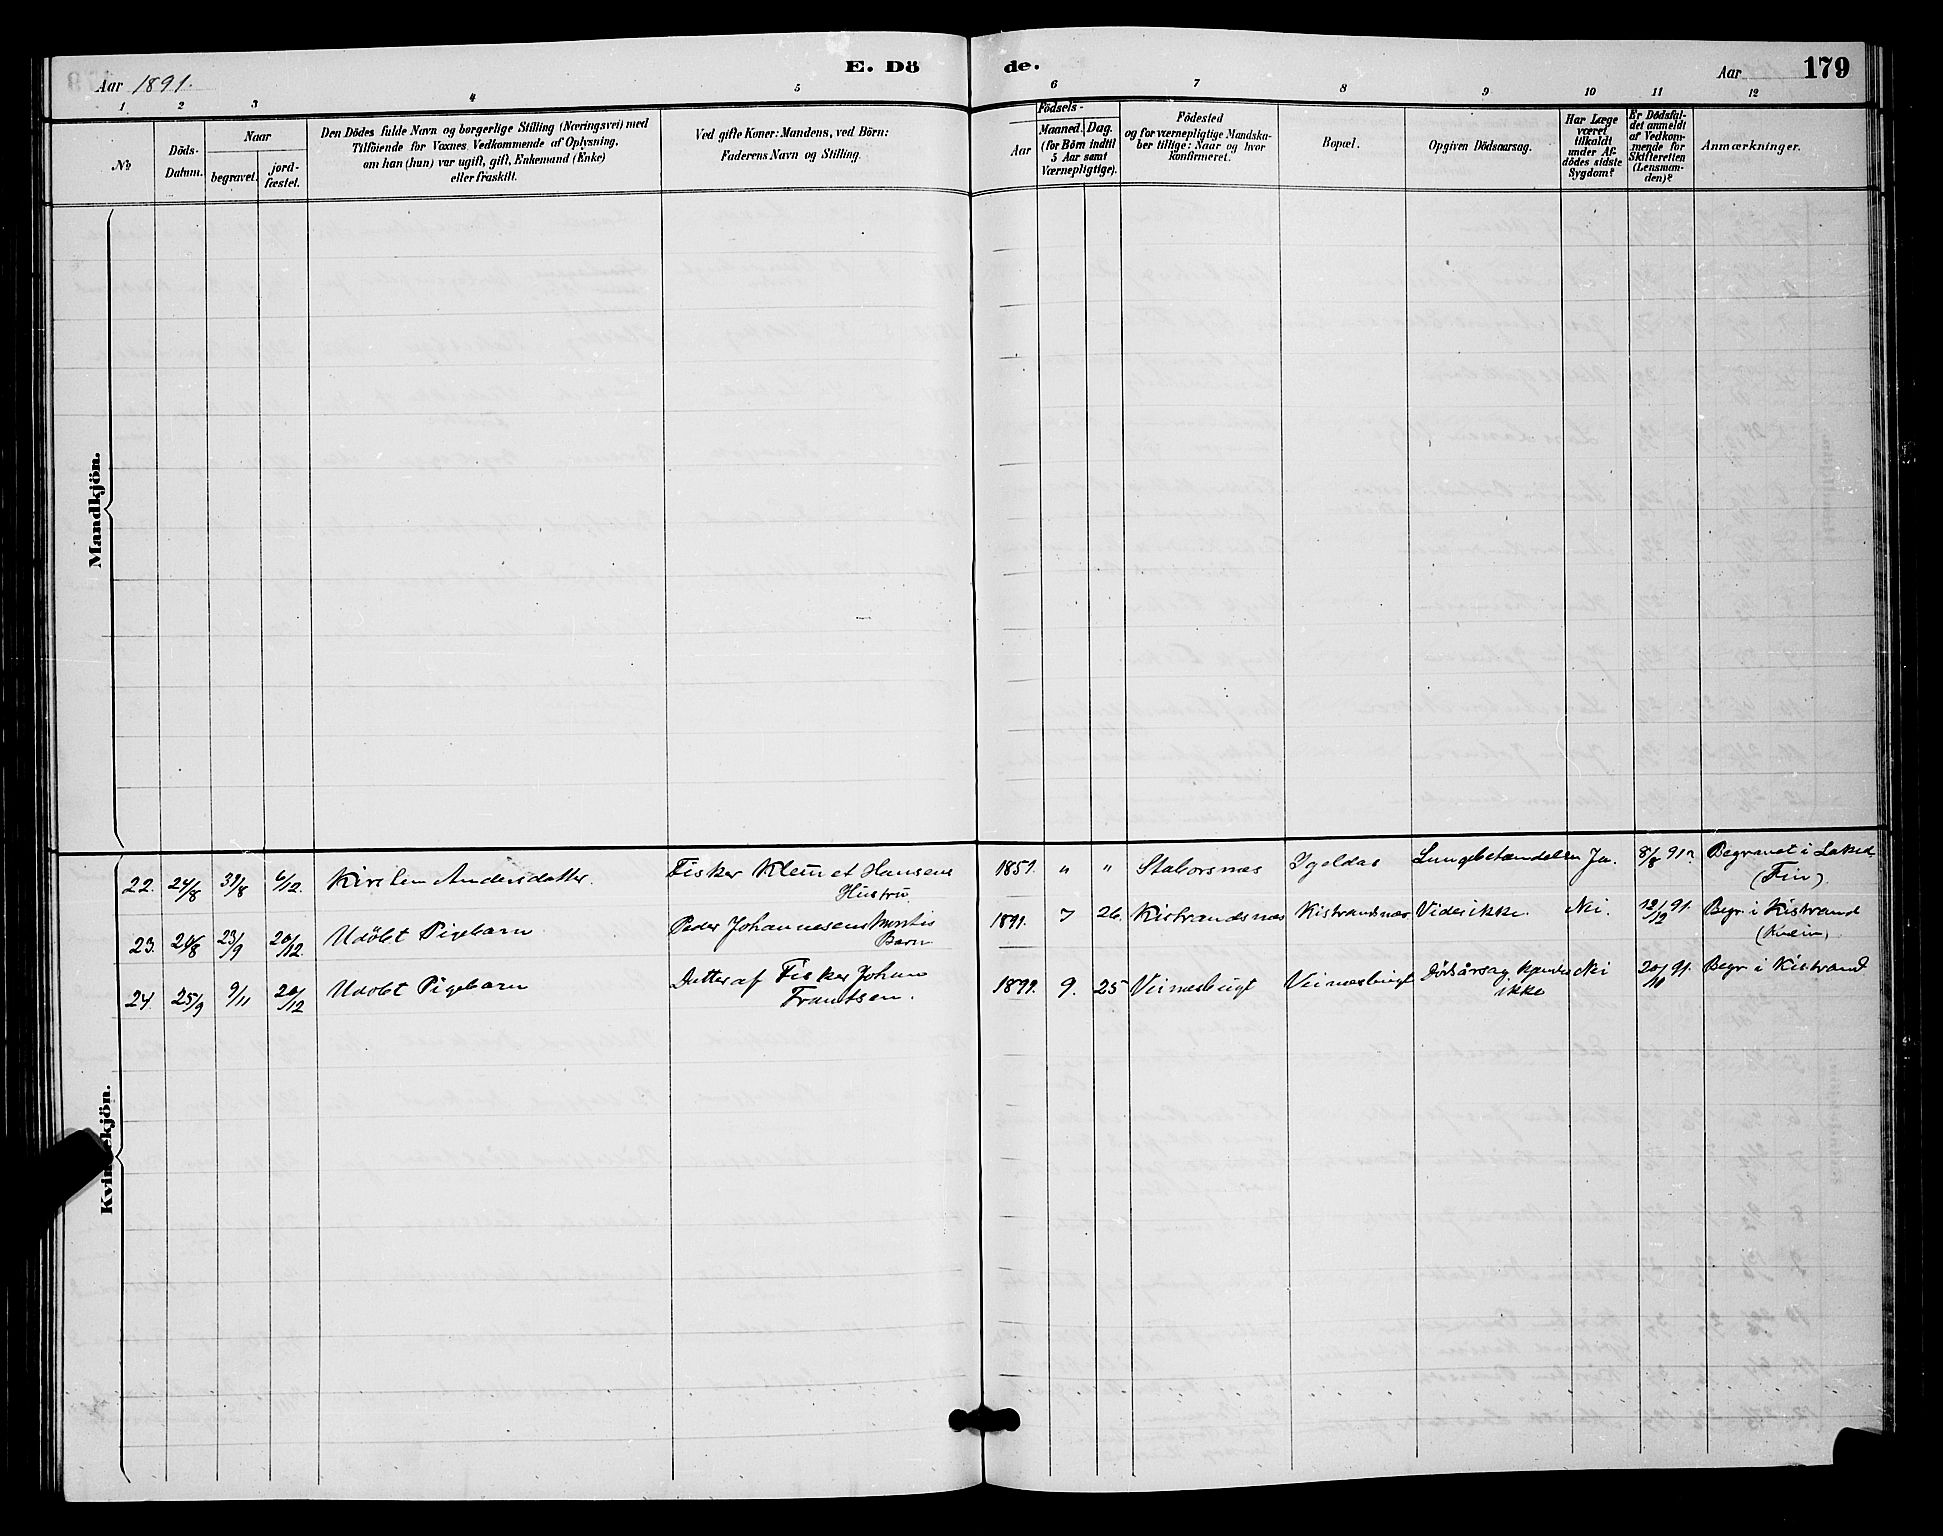 Aar 1891.
E. Dö
de.
Aar
179
1 2 3 4 5 6 7 8 9 10 11 12
No
Döds-
Datum.
Naar
begravet.
jord-
fæstet.
Den Dödes fulde Navn og borgerlige Stilling (Næringsvei) med
Tilföiende for Voxnes Vedkommende af Oplysning,
om han (hun) var ugift, gift, Enkemand (Enke)
eller fraskilt.
Ved gifte Koner: Mandens, ved Börn:
Faderens Navn og Stilling.
Födsels-
Aar
Maaned. Dag.
(for Börn indtil
5 Aar samt
Værnepligtige).
Födested
og for værnepligtige Mandska-
ber tillige: Naar og hvor
konfirmeret.
Bopæl.
Opgiven Dödsaarsag.
Har Læge
været
tilkaldt
under Af-
dödes sidste
Sygdom?
Er Dödsfal-
det anmeldt
af Vedkom-
mende for
Skifteretten
(Lensman-
den)?
Anmærkninger.
Mandkjön.
Kvindekjön.
22. 24/8 31/8 6/12. Kirsten Andersdatter. Fisker Klemet Hansens 1851. " " Staborsnæs Igeldas Lungebetændelse Ja. 8/8 91 Begravet i Laksel
Hustru (Fin).
23. 24/8 23/9 20/12. Udöbt Pigebarn Peder Johannesens 1891. 7 26. Kistrandsnæs Kistrandsnæs Vides ikke. Nei. 12/12 91. Begr. i Kistrand
Barn (Kvæn)
24. 25/9 9/11 20/12 Udobt Pigebarn Datter af Fisker Johan 1891. 9. 25 Veinæsbugt Veinæsbugt Dödsårsag kjendes Nei 20/10 91. Begr i Kistrand
Frantsen. ikke